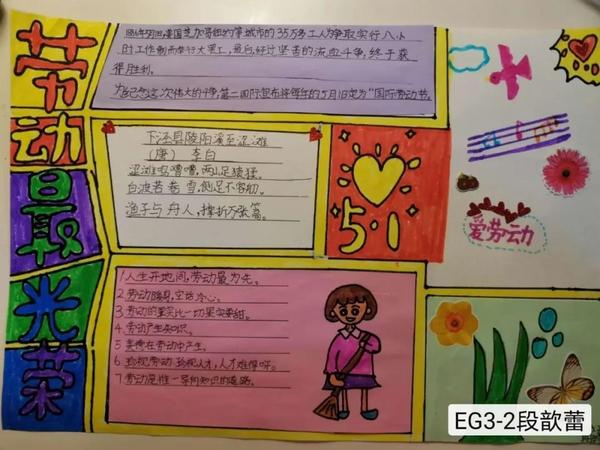 劳动最光荣
1886年5月1日,美国芝加哥
等城市的35万多工人为争取实行八小
时工作制而举行大罢工,最后,经过坚苦的流血斗争,终于获
得胜利。
为纪念这次伟大的斗争,第二国际宣布将每年的5月1日定为“国际劳动节。
下泾县陵阳溪至涩滩
(唐) 李白
涩滩鸣嘈嘈,两山足猿猱。
白波若卷雪,侧足不容舠。
渔子与舟人,撑折万张篙。
5·1
爱劳动
1 人生开地间,劳动最为先。
2 劳动 身,
3 劳动的果实比一切果实要甜。
4. 劳动产生知识。
5 美德在劳动中产生。
6 珍视劳动 珍视人才,人才难得呀。
7 劳动是惟一导向知识的道路。
EG3-2段歆蕾